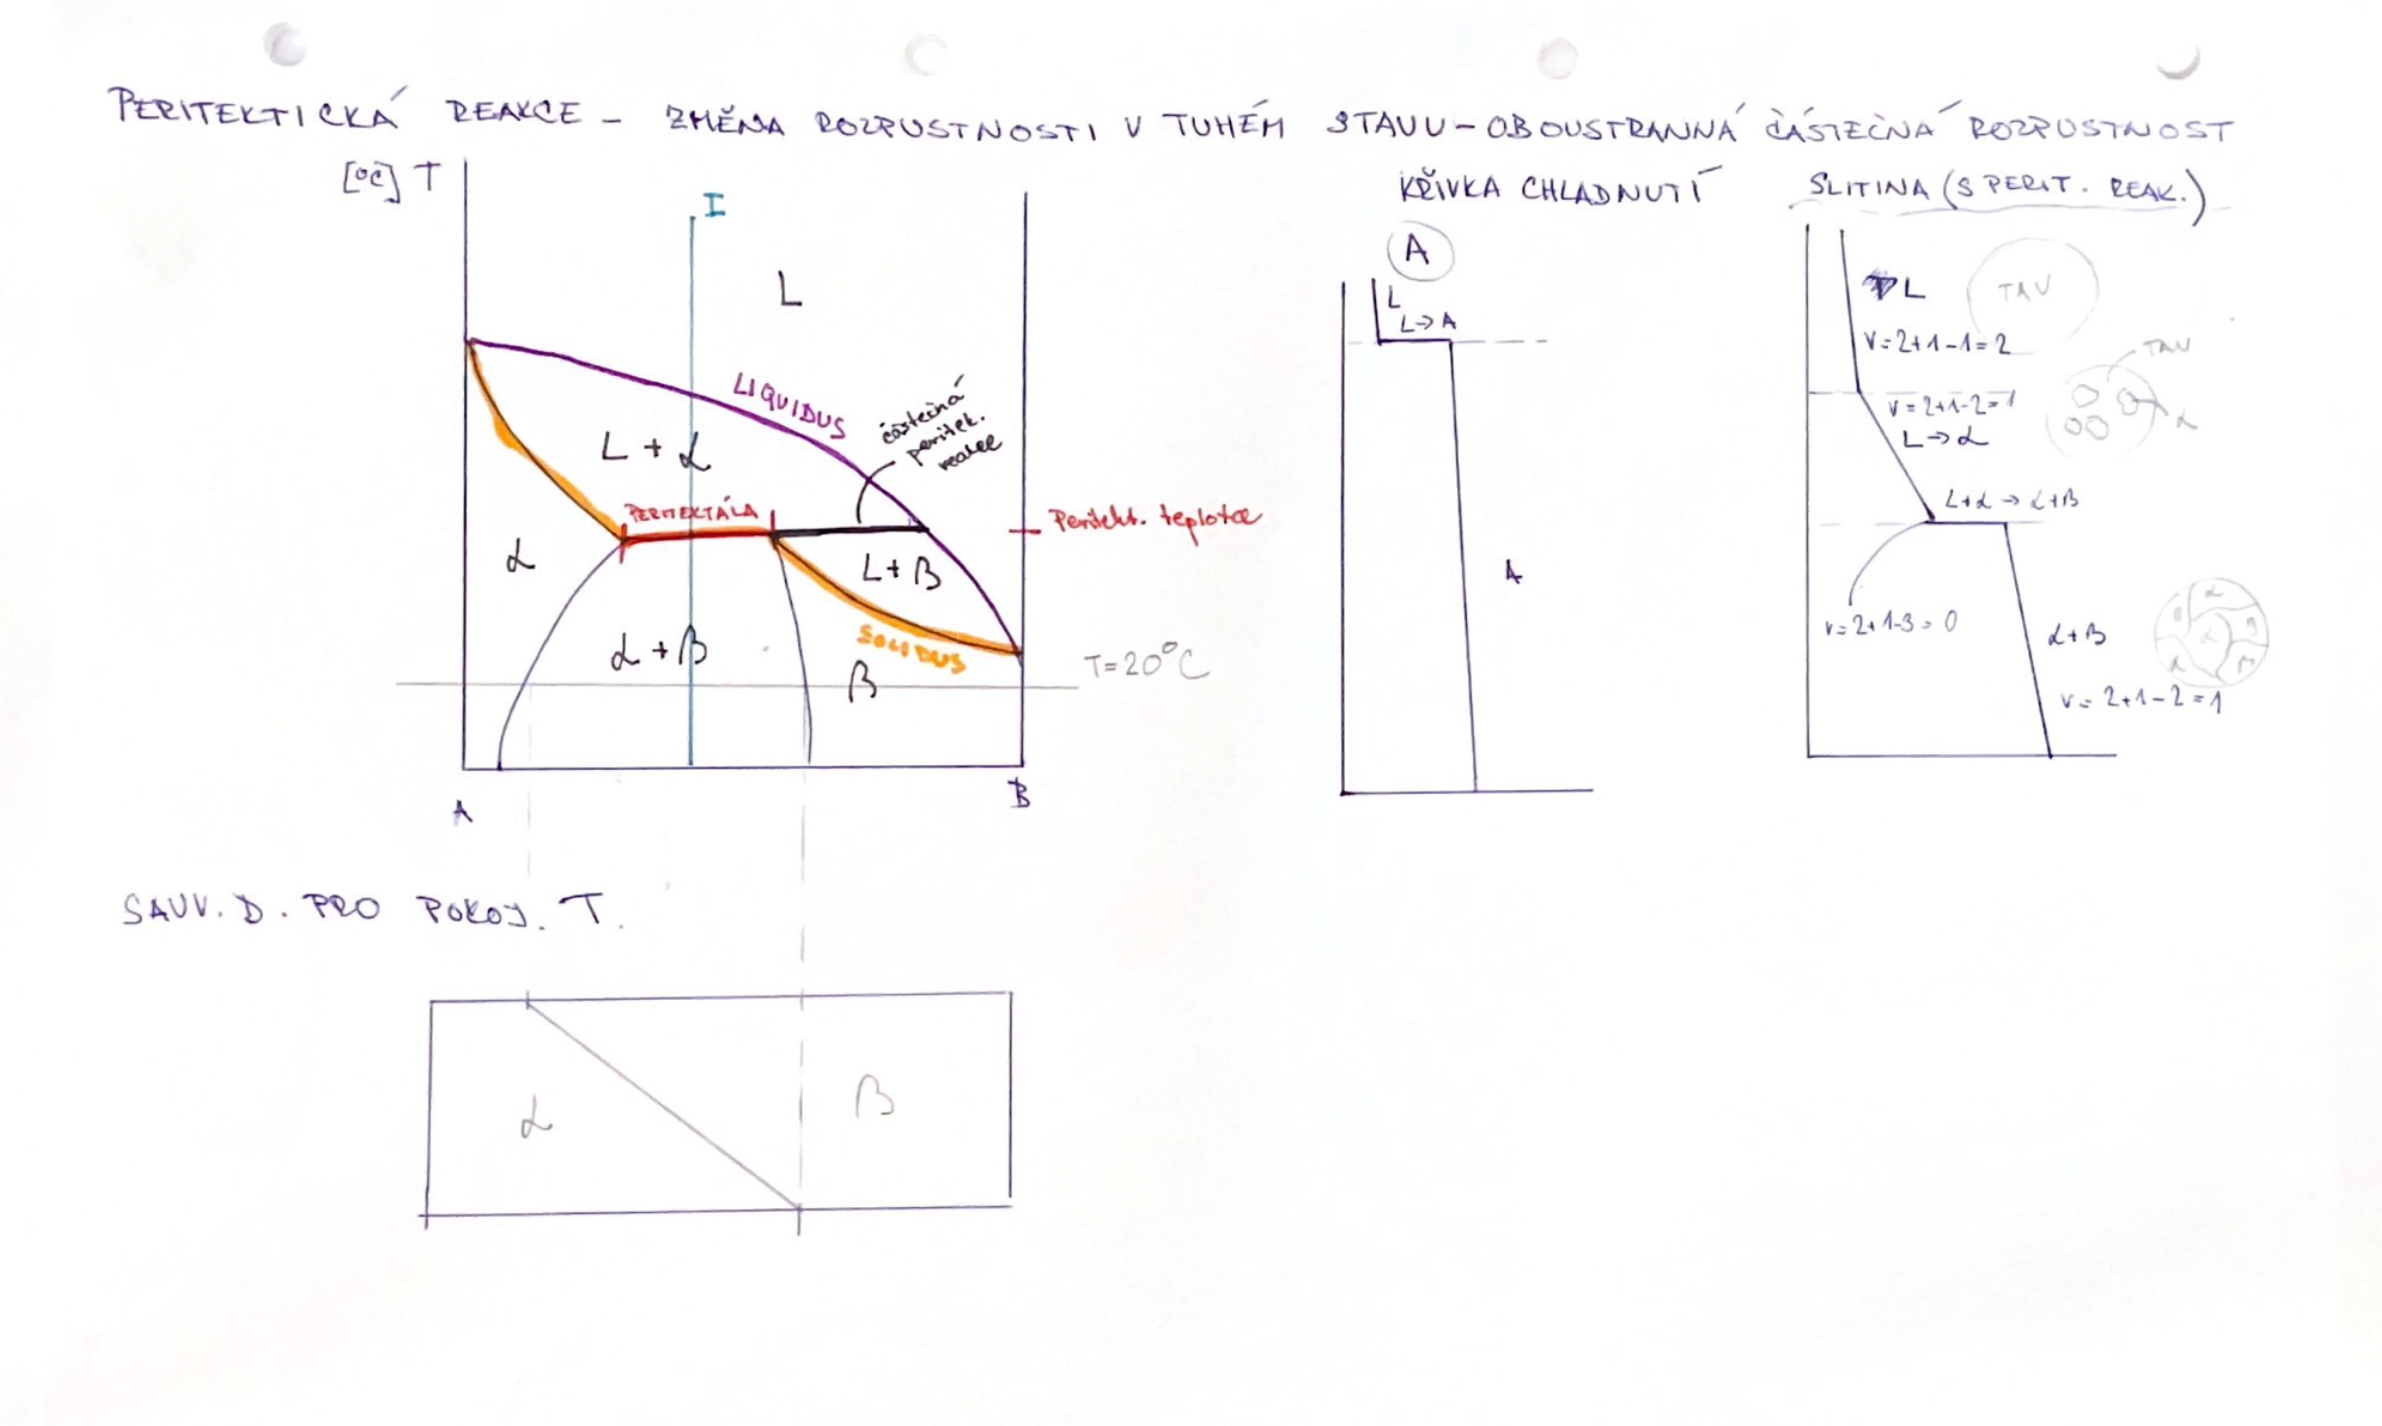 PERITEKTICKÁ REAKCE - ZMĚNA ROZPUSTNOSTI V TUHÉM STAVU - OBOUSTRANNÁ ČÁSTEČNÁ ROZPUSTNOST
[°C] T
I
L
LIQUIDUS
částečná
peritek.
reakce
L + α
PERITEKTÁLA
Peritekt. teplota
α
L + β
α + β
SOLIDUS
β
T = 20°C
A
B
KŘIVKA CHLADNUTÍ
A
L
L → A
A
SLITINA (S PERIT. REAK.)
L
TAV
v = 2+1-1 = 2
TAV
v = 2+1-2 = 1
L → α
α
L+α → α+β
v = 2+1-3 = 0
α+β
α
β
β
α
β
α
v = 2+1-2 = 1
SAUV. D. PRO POKOJ. T.
α
β